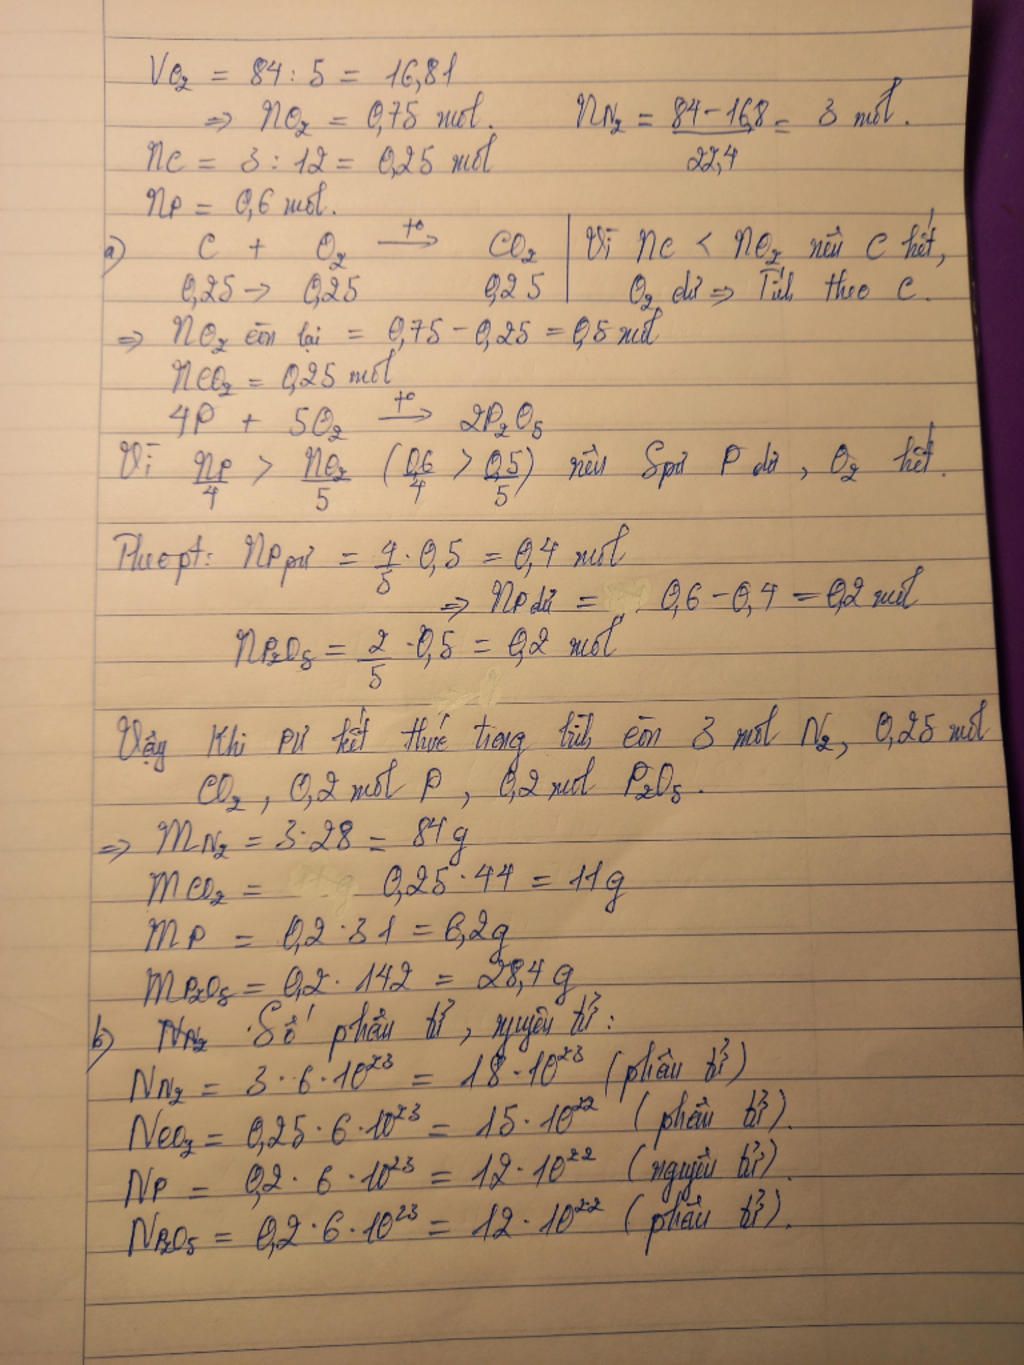 VO₂ = 84 : 5 = 16,8l
⇒ nO₂ = 0,75 mol. nN₂ = (84 - 16,8)/22,4 = 3 mol.
nC = 3 : 12 = 0,25 mol
nP = 0,6 mol.
a) C + O₂ –t°→ CO₂ | Vì nC < nO₂ nên C hết,
0,25 → 0,25 0,25 | O₂ dư ⇒ Tính theo C.
⇒ nO₂ còn lại = 0,75 - 0,25 = 0,5 mol
nCO₂ = 0,25 mol
4P + 5O₂ –t°→ 2P₂O₅
Vì nP/4 > nO₂/5 (0,6/4 > 0,5/5) nên Spứ P dư, O₂ hết.
Theo pt: nP pứ = 4/5 · 0,5 = 0,4 mol
⇒ nP dư = 0,6 - 0,4 = 0,2 mol
nP₂O₅ = 2/5 · 0,5 = 0,2 mol
Vậy Khi pứ kết thúc trong bình còn 3 mol N₂, 0,25 mol
CO₂, 0,2 mol P, 0,2 mol P₂O₅.
⇒ mN₂ = 3·28 = 84g
mCO₂ = 0,25·44 = 11g
mP = 0,2·31 = 6,2g
mP₂O₅ = 0,2·142 = 28,4g
b) NN₂ · Số phân tử, nguyên tử:
NN₂ = 3·6·10²³ = 18·10²³ (phân tử)
NCO₂ = 0,25·6·10²³ = 15·10²² (phân tử).
NP = 0,2·6·10²³ = 12·10²² (nguyên tử).
NP₂O₅ = 0,2·6·10²³ = 12·10²² (phân tử).